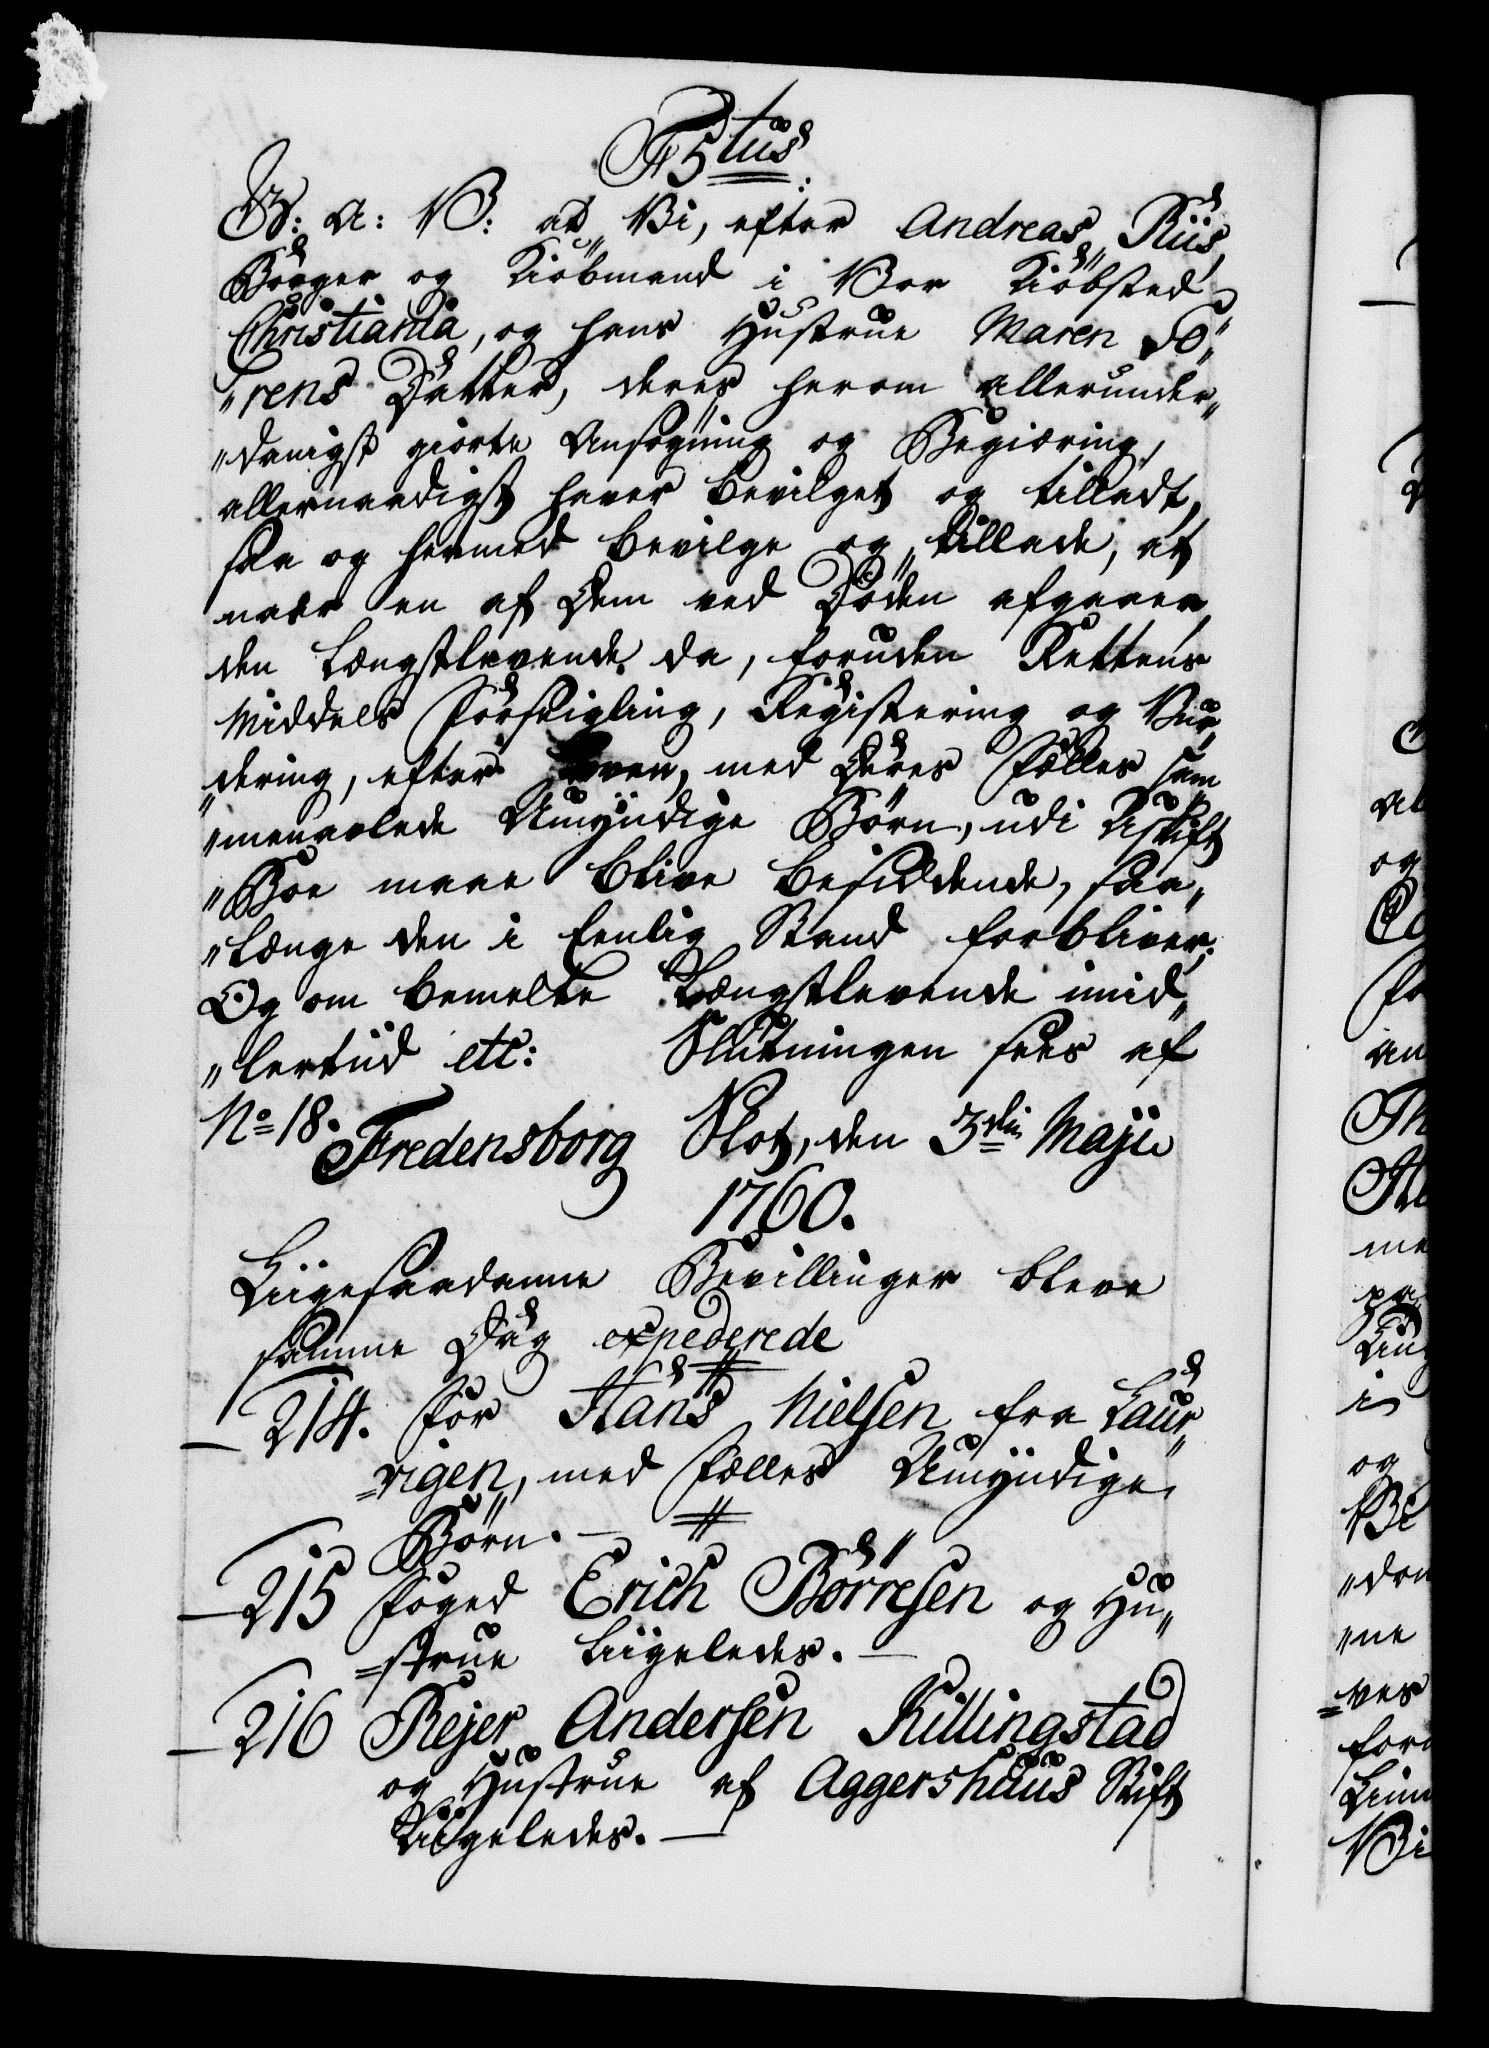 F5tus.
G: A: V: at Vi, efter Andreas Riis,
Borger og Kiöbmand i Vor Kiöbsted
Christiania, og hans Hustrue Maren Sö„
„rens Datter, deres herom allerunder„
„danigst giorte Ansøgning og Begiæring,
allernaadigst haver bevilget og tilladt,
saa og hermed bevilge og tillade, at
naar en af Dem ved Döden afgaaer,
den Længstlevende da, foruden Rettens
Middels Forseigling, Registering og Vur„
„dering, efter Loven, med Deres Fælles sam„
„menavlede Umÿndige Börn, udi Uskift
„Boe maae blive besiddende, saa„
„længe den i Eenlig Stand forbliver.
Og om bemelte Længstlevende imid„
„lertiid etc: Slutningen sees af
No 18. Fredensborg Slot, den 3die Maji
1760.
Liigesaadanne Bevillinger bleve
samme Dag expederede
214. For Hans Nielsen fra Laur„
=vigen, med Fælles Umÿndige
Börn. —
215 Foged Erich Börresen og Hu„
=strue liigeledes. —
216 Rejer Andersen Killingstad
og Hustrue af Aggershuus Stift
Liigeledes. —